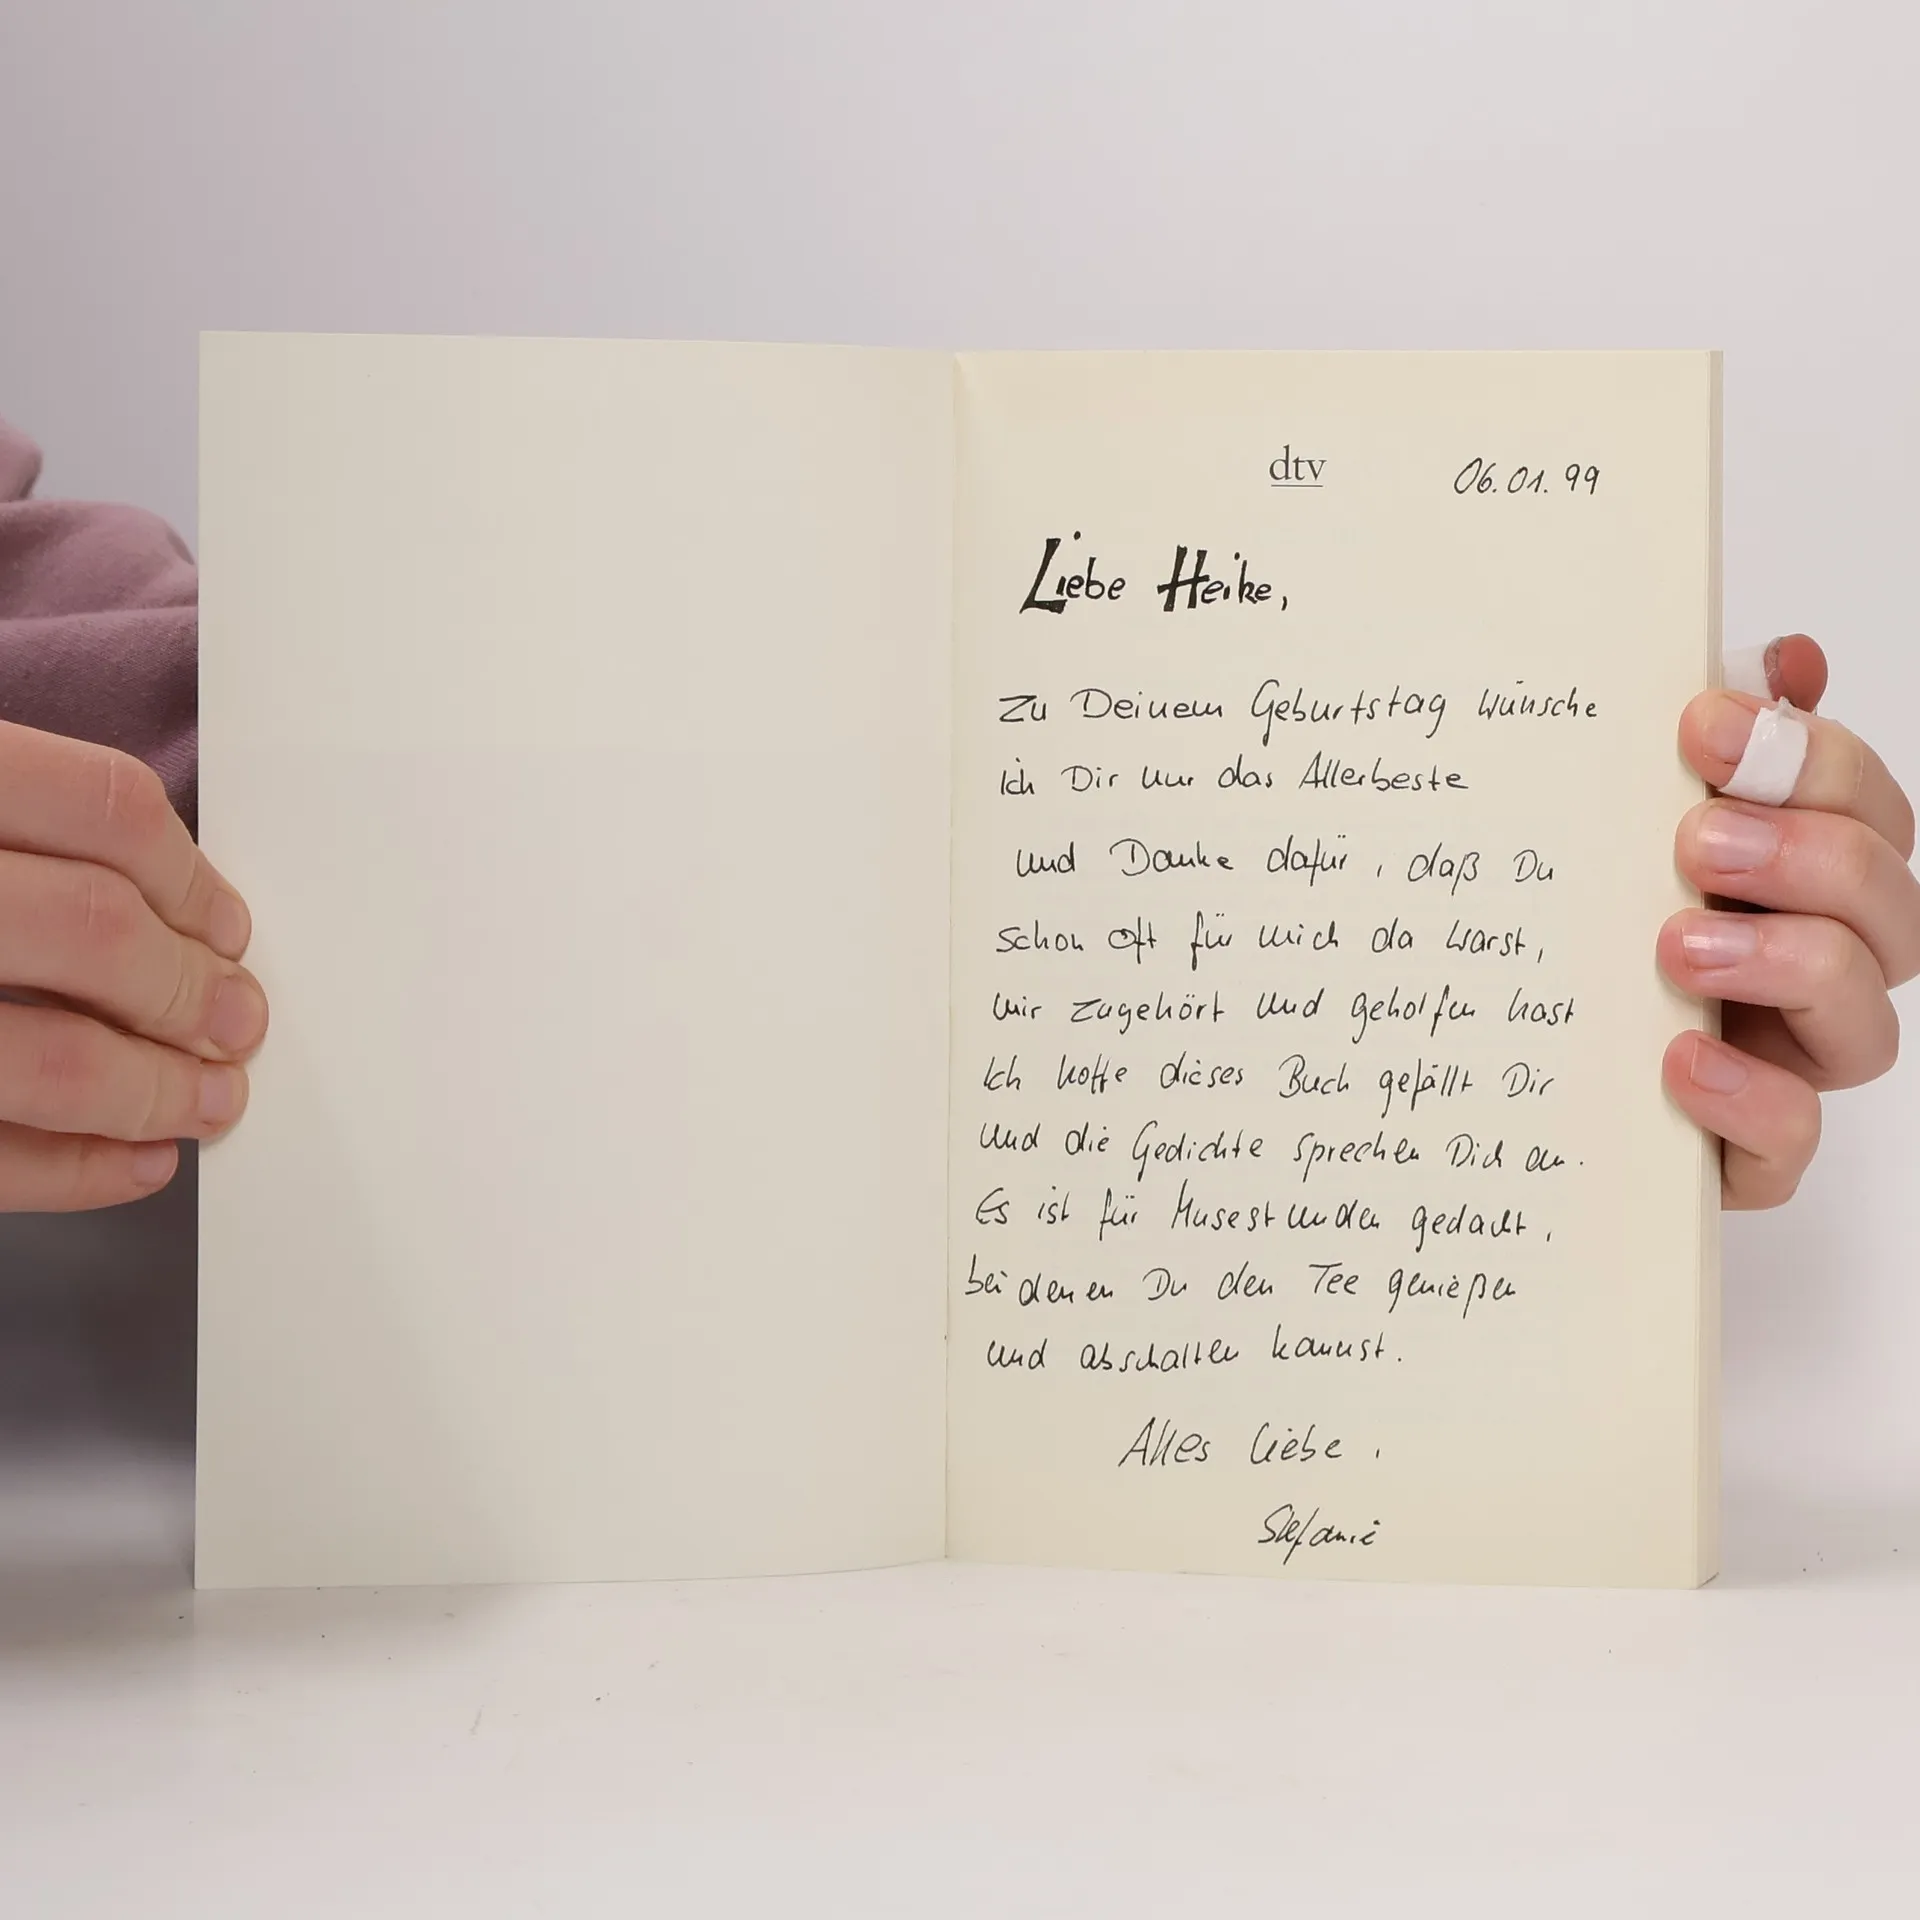 dtv 06.01.99
Liebe Heike,
Zu Deinem Geburtstag wünsche
ich Dir nur das Allerbeste
und Danke dafür, daß Du
schon oft für mich da warst,
mir zugehört und geholfen hast
Ich hoffe dieses Buch gefällt Dir
und die Gedichte sprechen Dich an.
Es ist für Musestunden gedacht,
bei denen Du den Tee genießen
und abschalten kannst.
Alles Liebe,
Stefanie